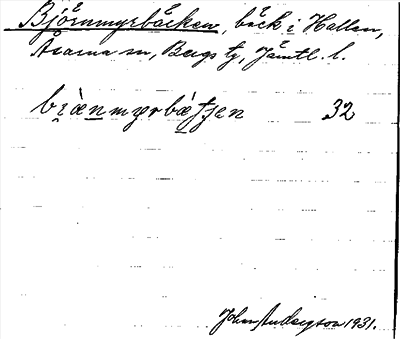 Björnmyrbäcken, bäck i Hallen,
Åsarna sn, Bergs tg, Jämtl. l.
bi̯ànmyrbætʃen 32
John Andersson 1931.